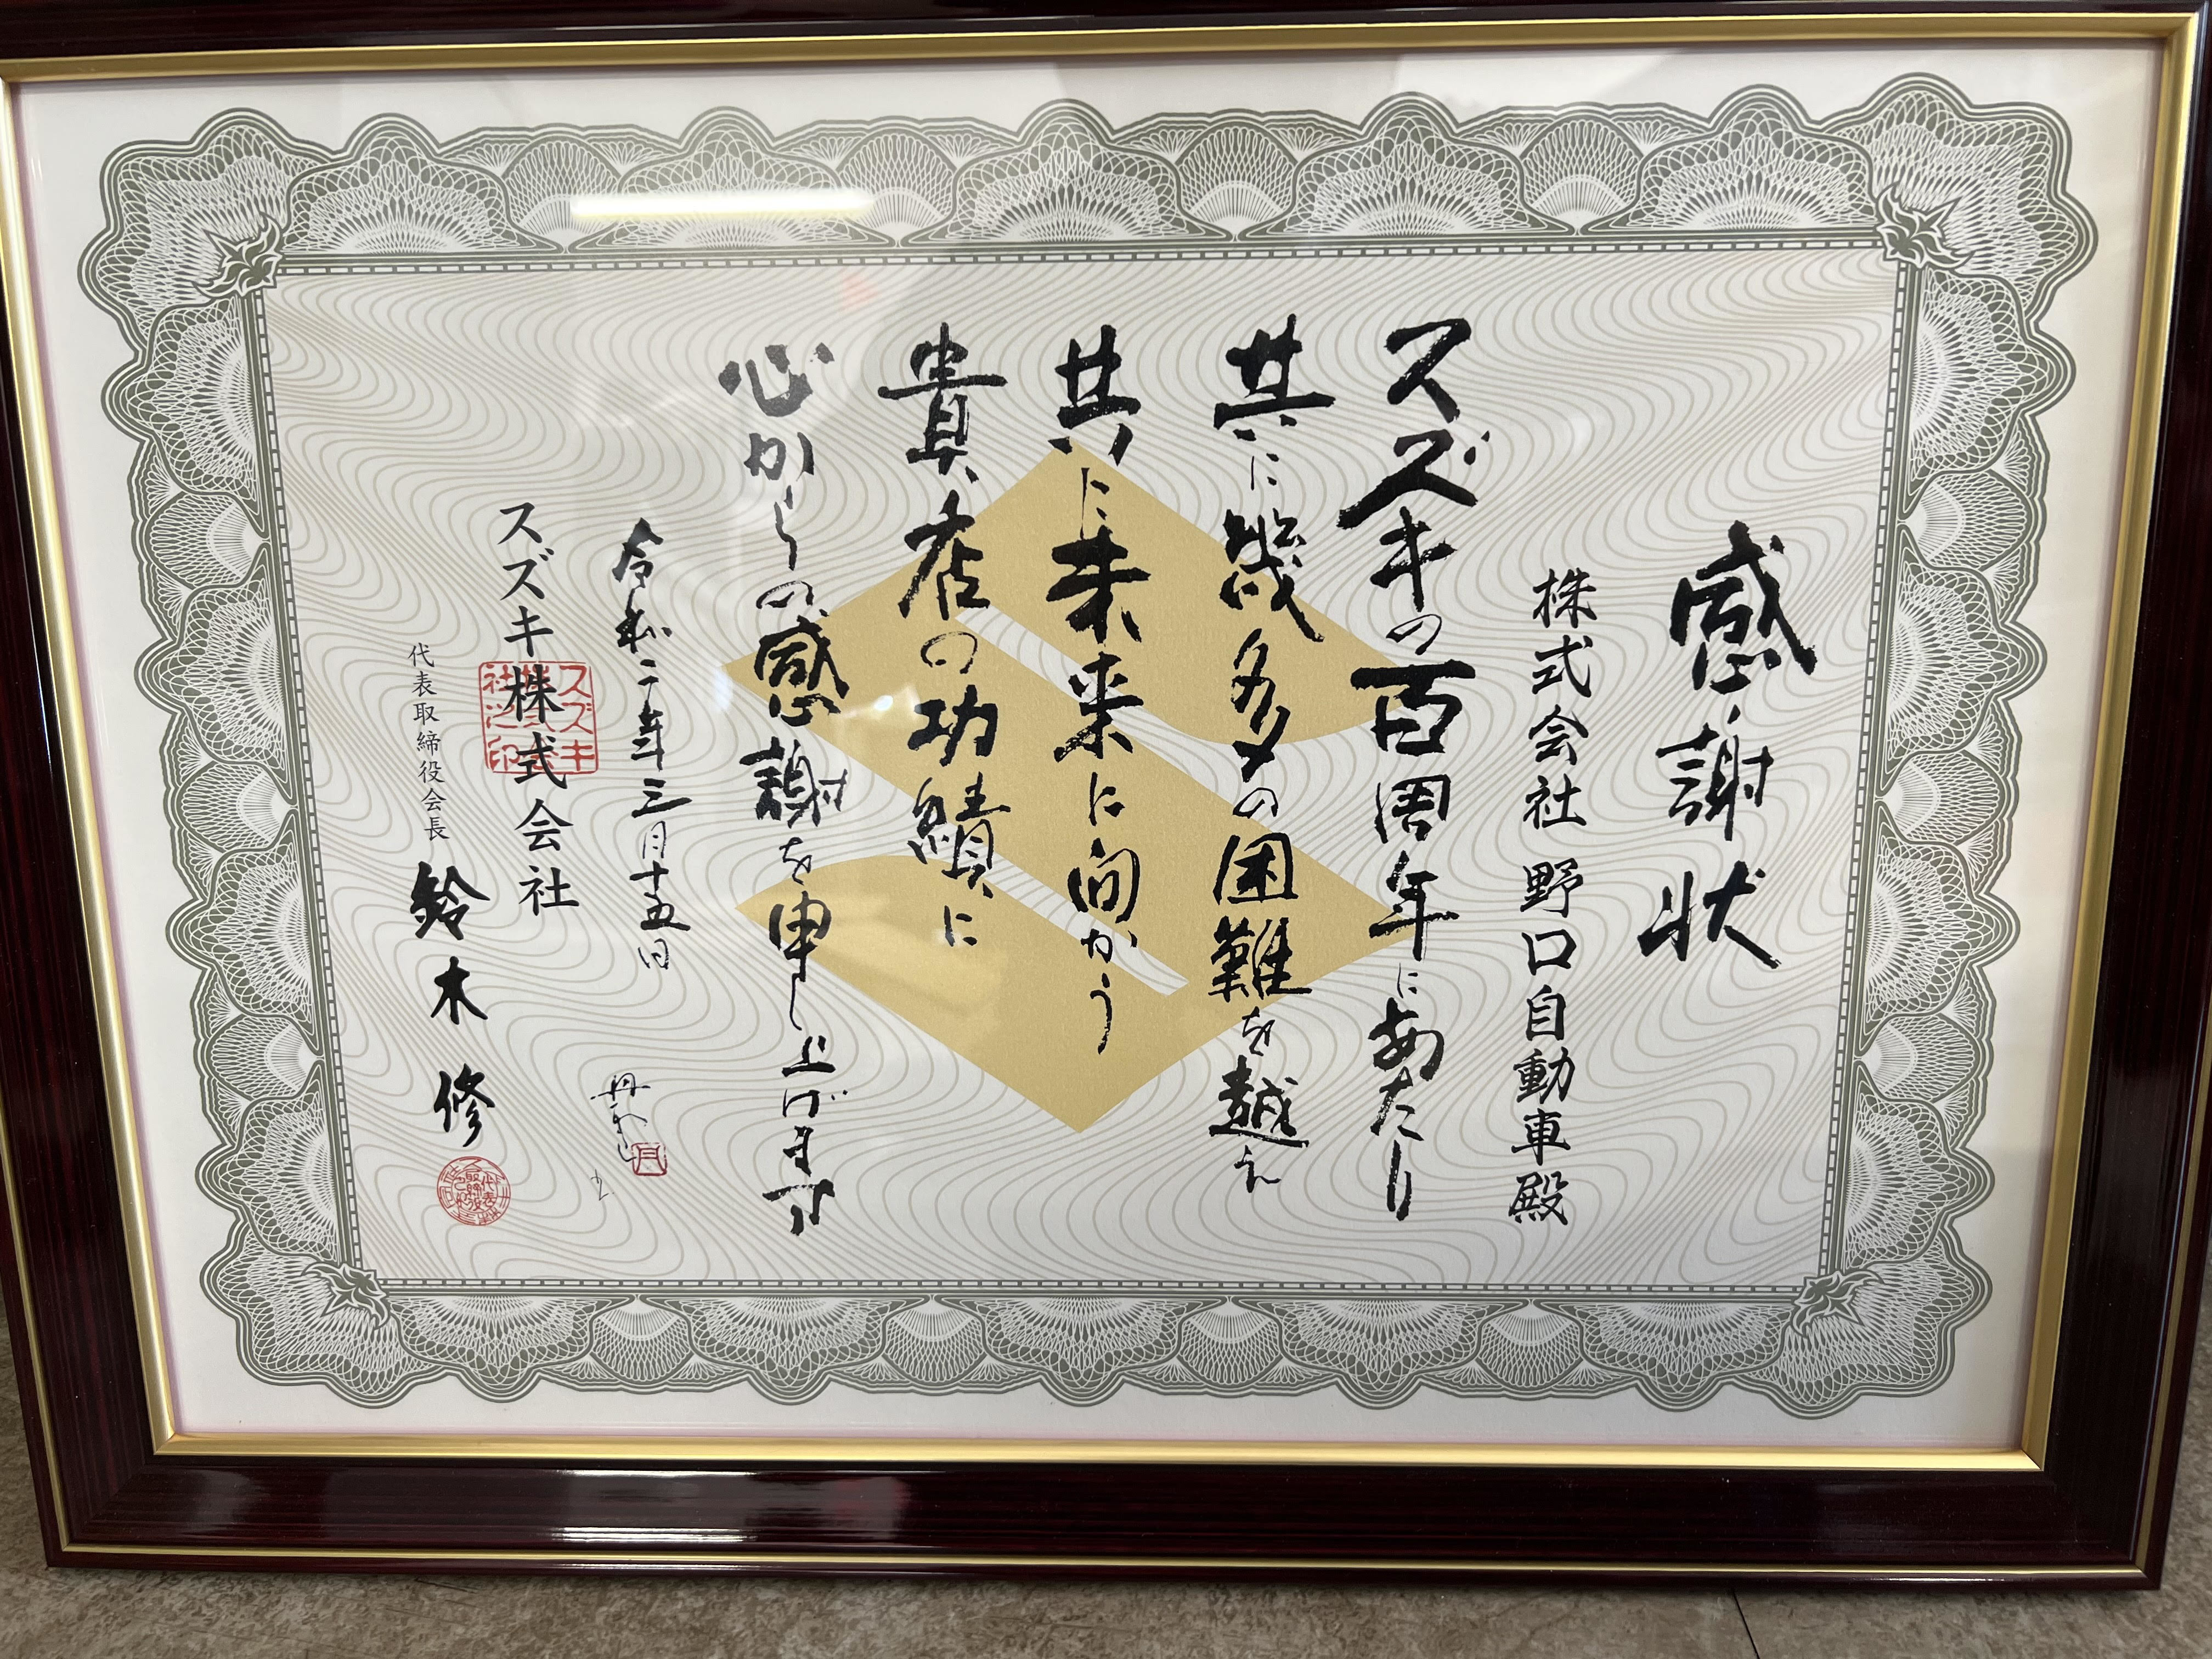 感謝状
株式会社 野口自動車殿
スズキの百周年にあたり
共に幾多の困難を越え
共に未来に向かう
貴店の功績に
心からの感謝を申し上げます
令和二年三月十五日
スズキ株式会社
スズキ株式会社之印
代表取締役会長 鈴木 修